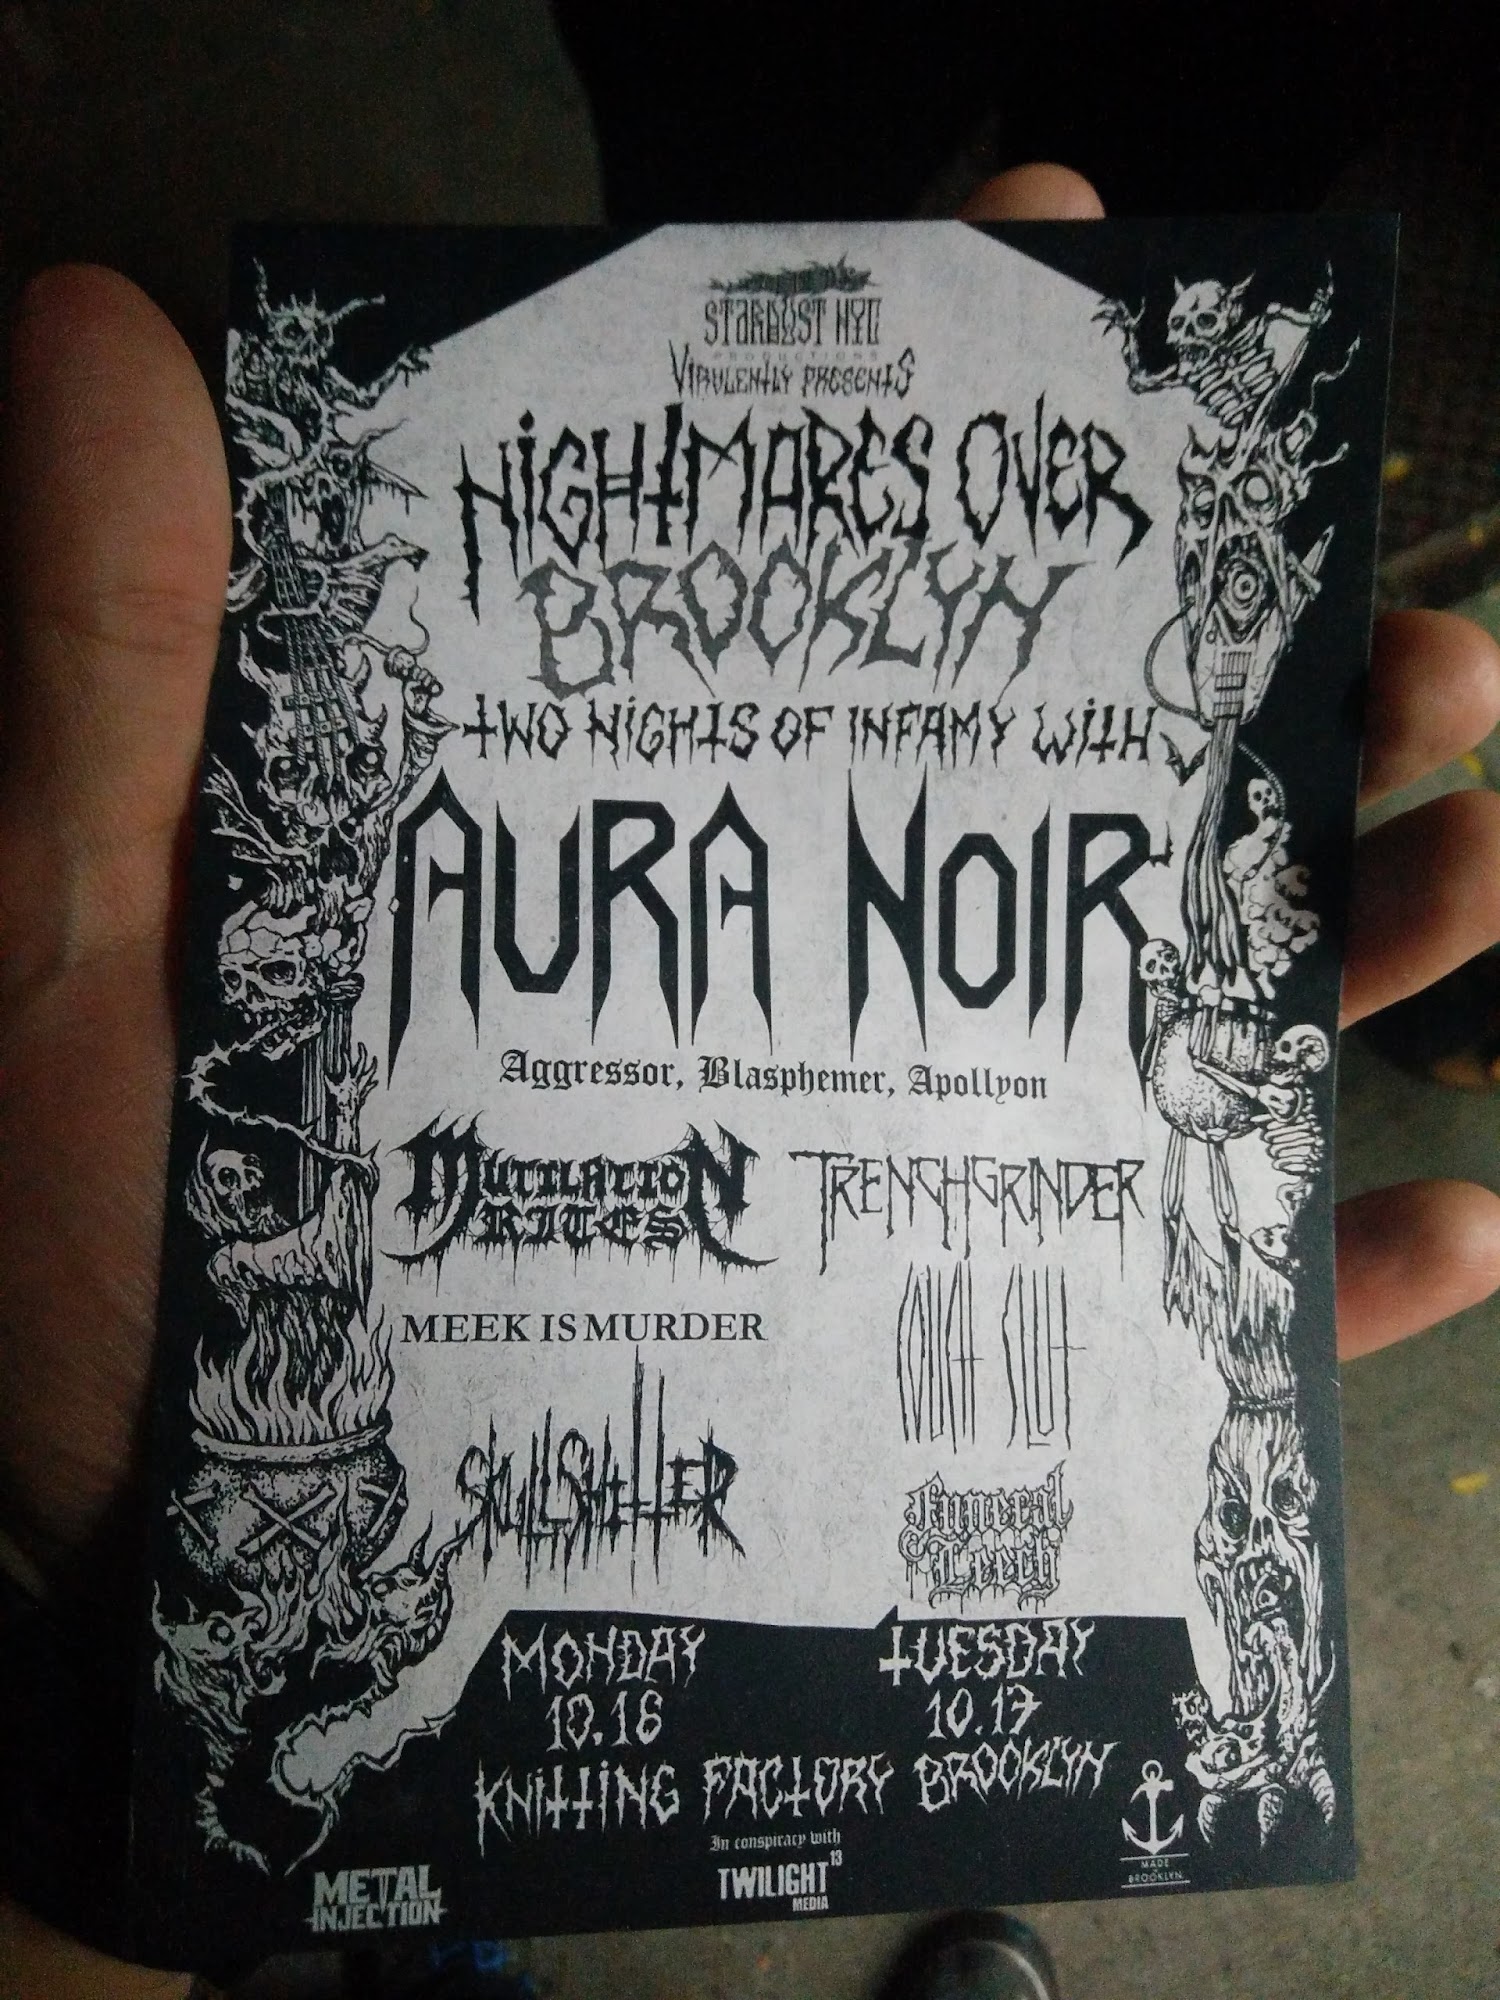 STARDUST NYC
PRODUCTIONS
VIRULENTLY PRESENTS
NIGHTMARES OVER
BROOKLYN
TWO NIGHTS OF INFAMY WITH
AURA NOIR
Aggressor, Blasphemer, Apollyon
MUTILATION
RITES
MEEK IS MURDER
SKULLSHITTER
TRENCHGRINDER
COUCH SLUT
Funeral
Leech
MONDAY
10.16
TUESDAY
10.17
KNITTING FACTORY BROOKLYN
In conspiracy with
TWILIGHT 13
MEDIA
METAL
INJECTION
MADE
IN
BROOKLYN